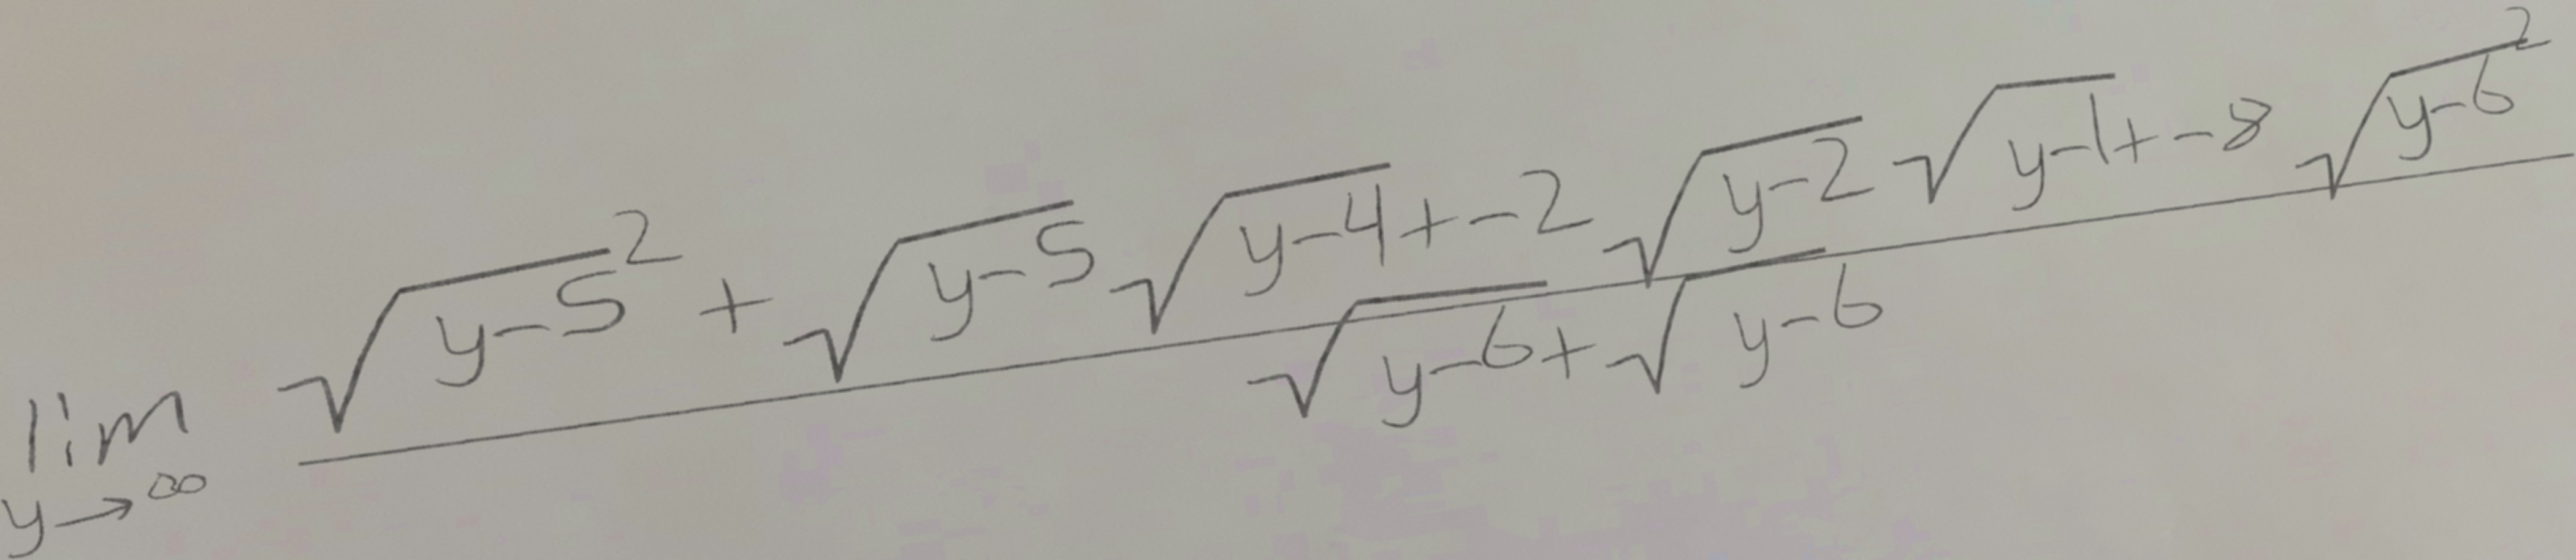 \lim_{y \to \infty} \frac{\sqrt{y-5}^2 + \sqrt{y-5}\sqrt{y-4} + -2\sqrt{y-2}\sqrt{y-1} + -8\sqrt{y-6}^2}{\sqrt{y-6} + \sqrt{y-6}}